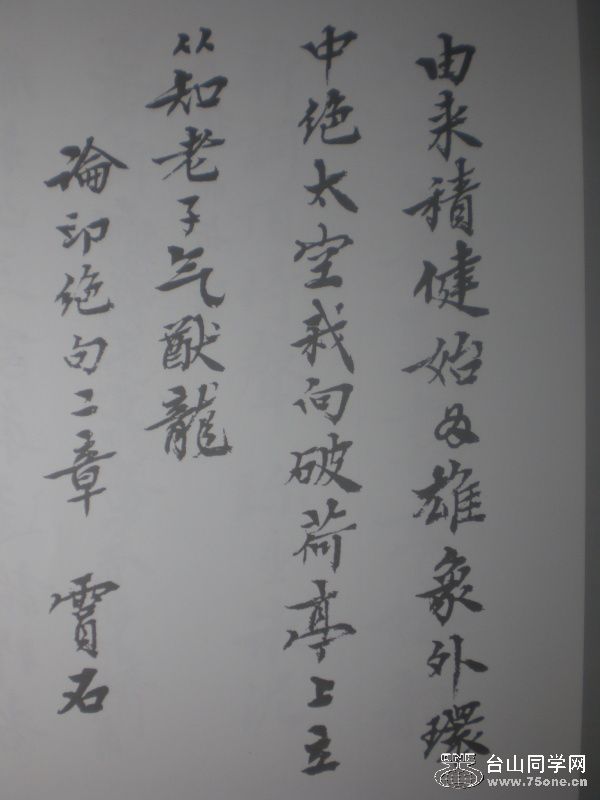 由来積健始为雄象外環
中绝太空我向破荷亭上立
从知老子气猷龍
論印绝句二章 石
台山同学网
www.75one.cn